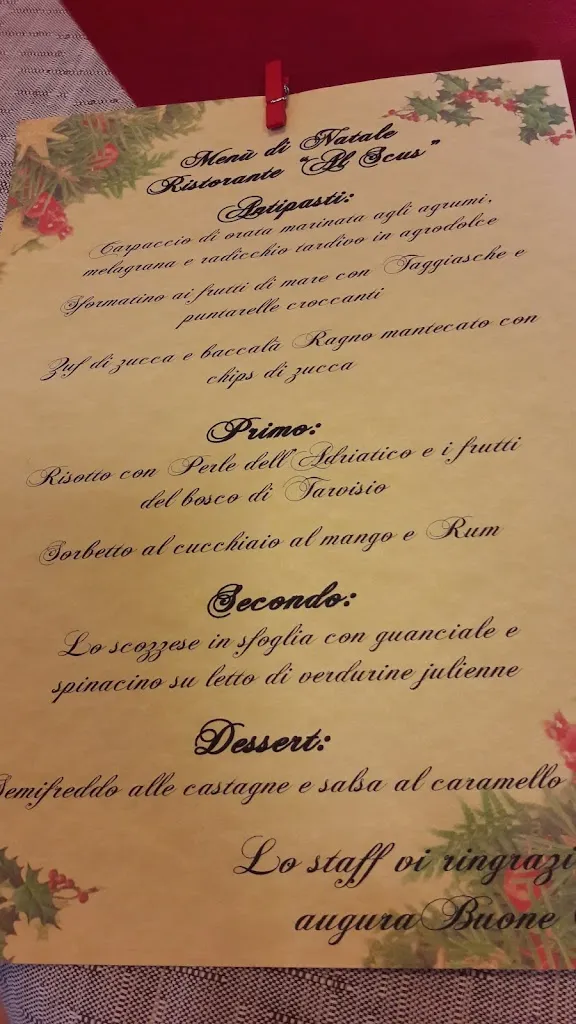 Menù di Natale
Ristorante "Al Scus"
Antipasti:
Carpaccio di orata marinata agli agrumi,
melagrana e radicchio tardivo in agrodolce
Sformatino ai frutti di mare con Taggiasche e
puntarelle croccanti
Zuf di zucca e baccalà Ragno mantecato con
chips di zucca
Primo:
Risotto con Perle dell'Adriatico e i frutti
del bosco di Tarvisio
Sorbetto al cucchiaio al mango e Rum
Secondo:
Lo scozzese in sfoglia con guanciale e
spinacino su letto di verdurine julienne
Dessert:
Semifreddo alle castagne e salsa al caramello
Lo staff vi ringrazi
augura Buone